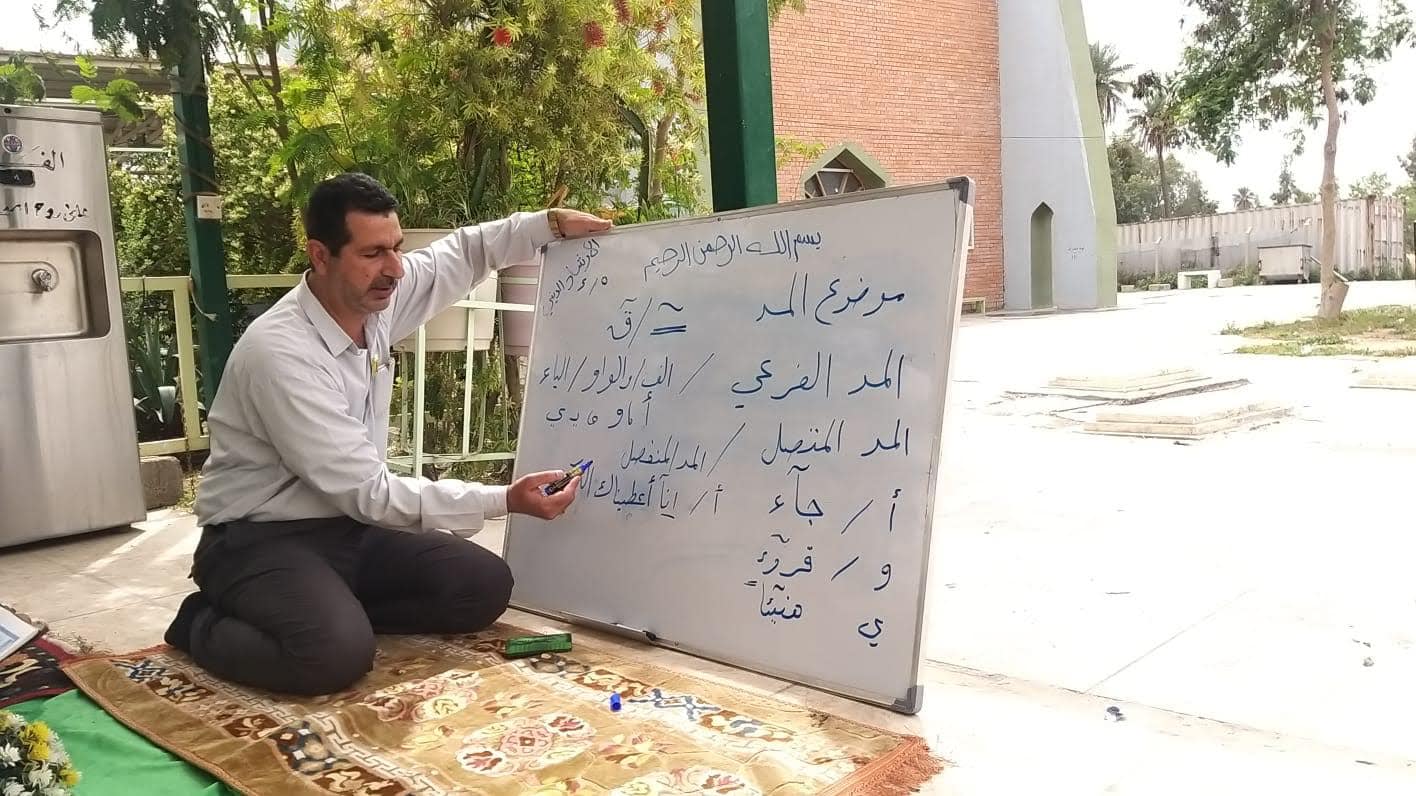 بسم الله الرحمن الرحيم
موضوع المد ~ / قٓ
المد الفرعي / الف / والواو / الياء
أ او و ي
المد المتصل / المد المنفصل
أ / جآء أ / إنآ أعطيناك
و / قروٓء
ي هنيٓئاً